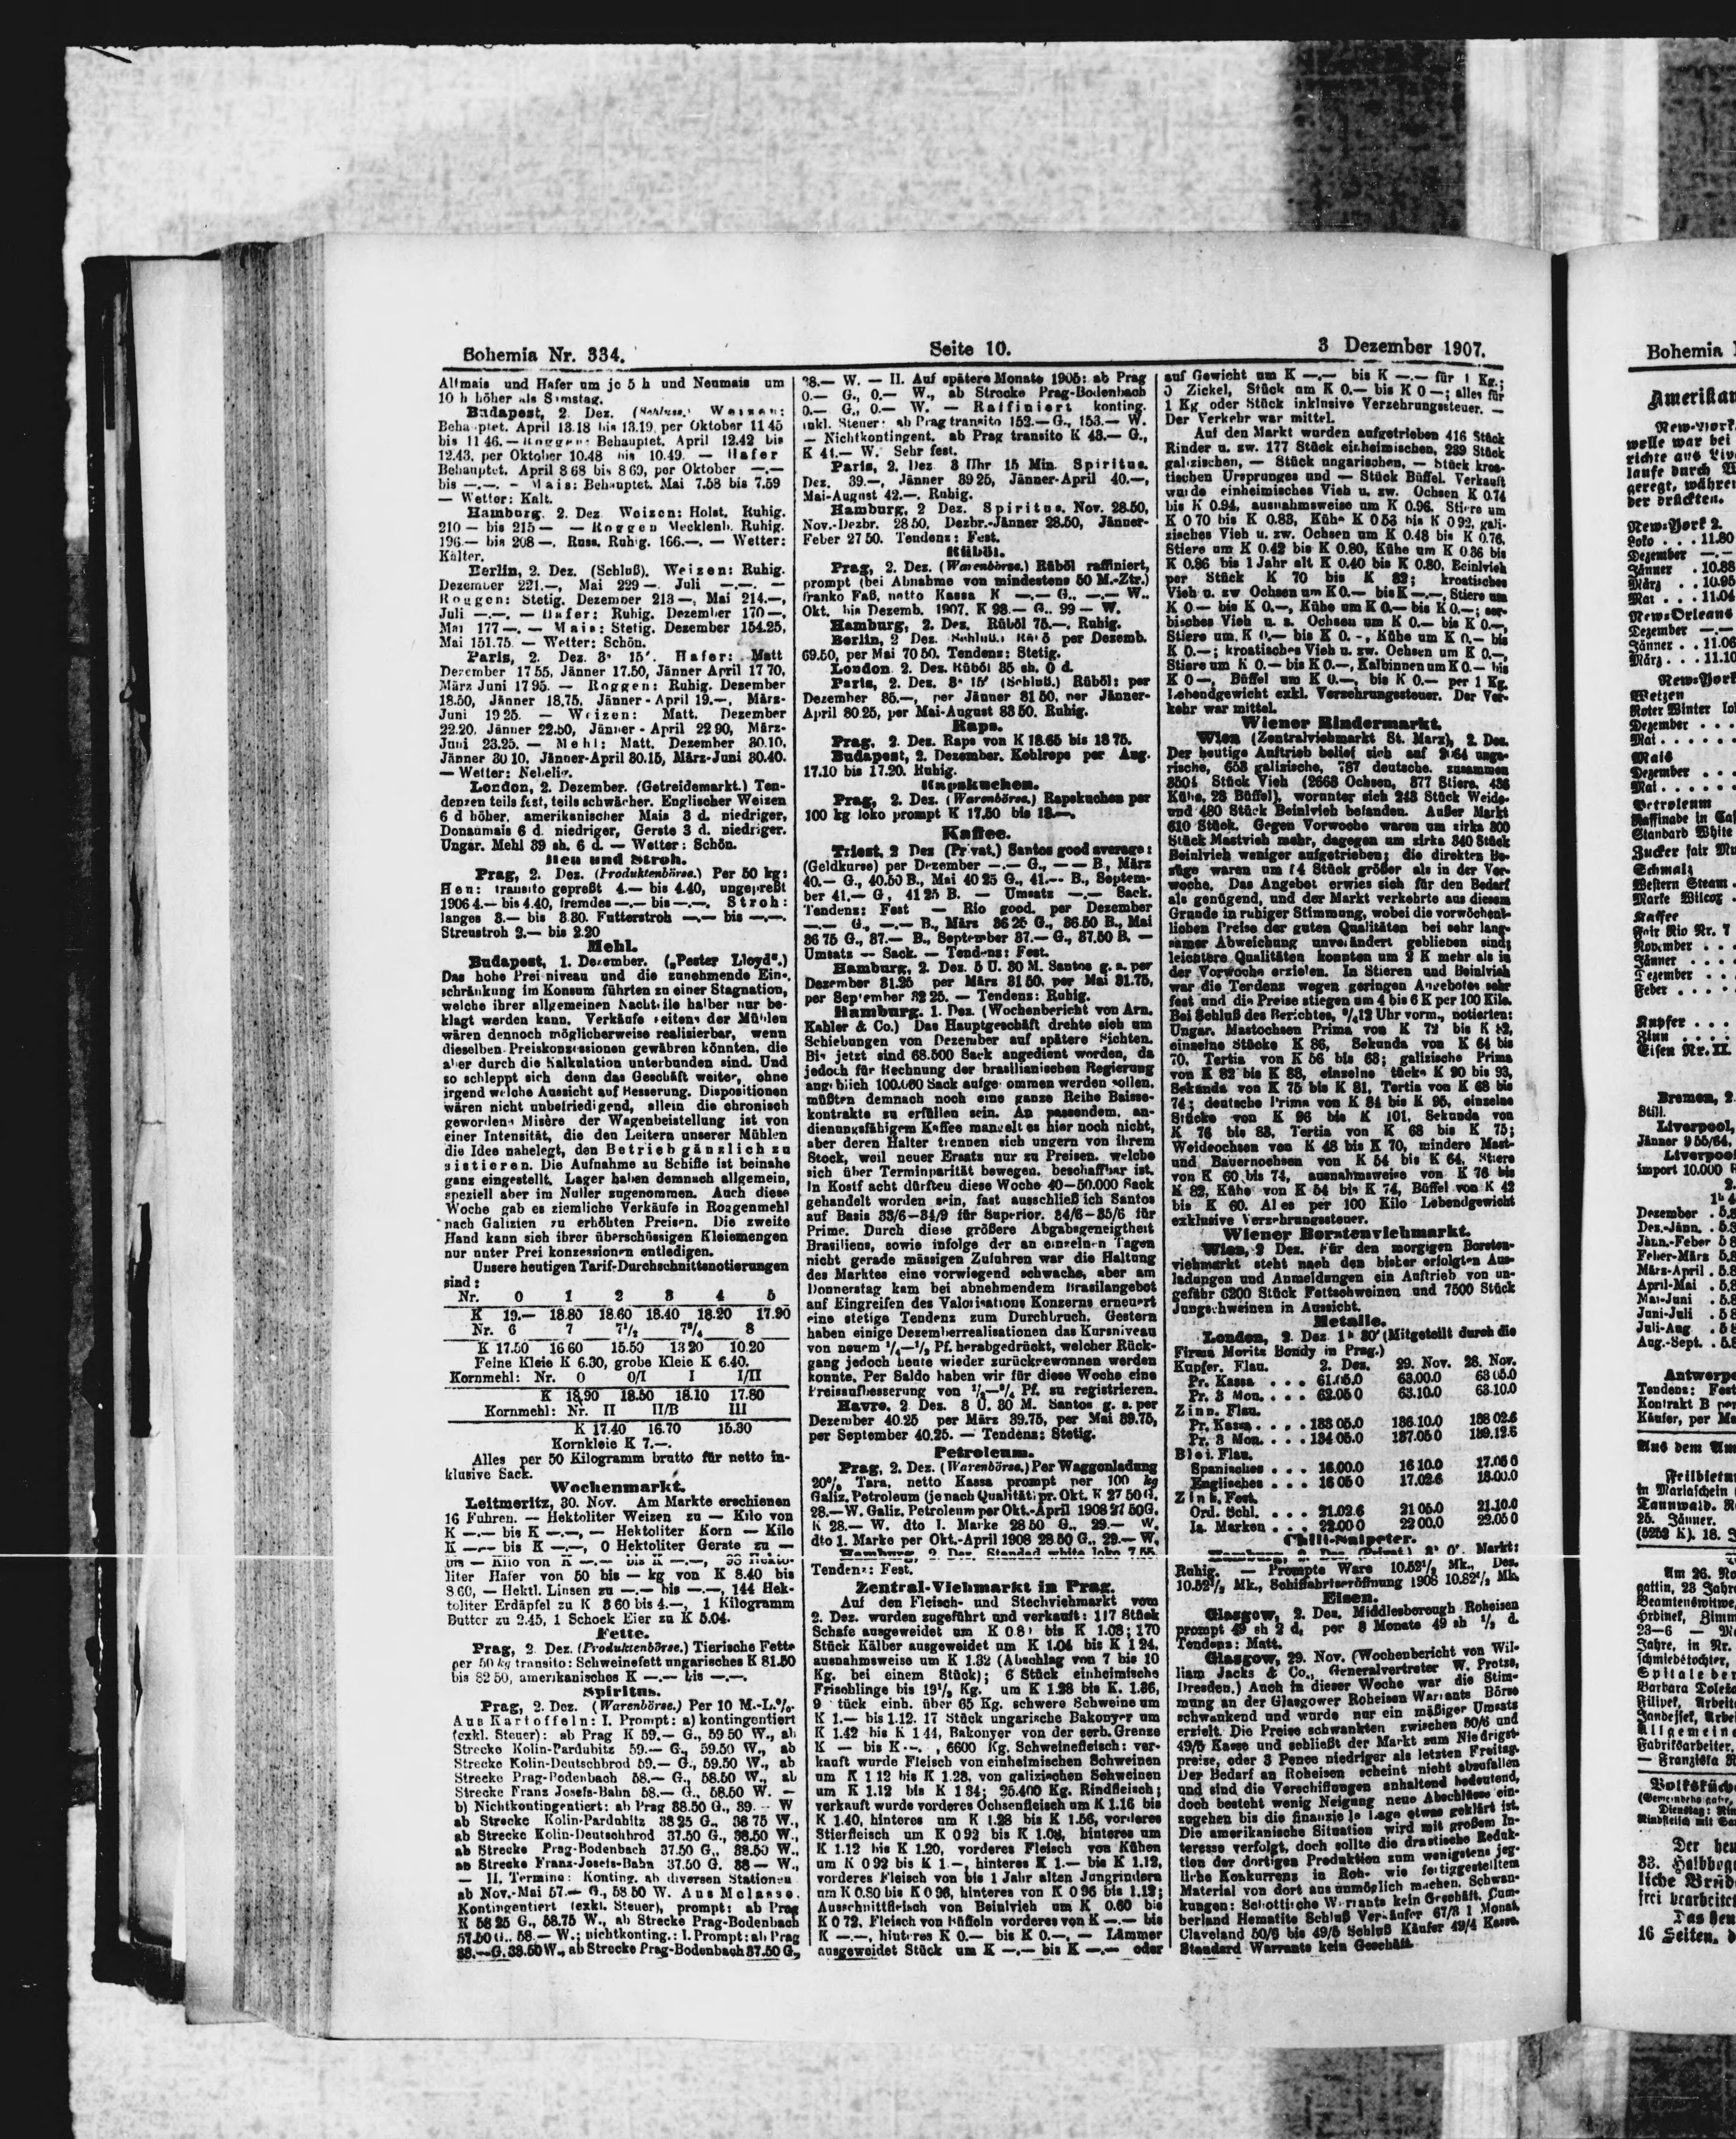 Bohemia Nr. 334.
Seite 10.
3 Dezember 1907.
Altmais und Hafer um je 5 h und Neumais um
10 h höher als Samstag.
Budapest, 2. Dez. (Schluss.) Weizen:
Behauptet. April 13.18 bis 13.19, per Oktober 11 45
bis 11 46. — Roggen: Behauptet. April 12.42 bis
12.43, per Oktober 10.48 bis 10.49. — Hafer
Behauptet. April 8 68 bis 8 69, per Oktober —.—
bis —.—. – Mais: Behauptet. Mai 7.58 bis 7.59
— Wetter: Kalt.
Hamburg. 2. Dez Weizen: Holst. Ruhig.
210 — bis 215 — — Roggen Mecklenb. Ruhig.
196.— bis 208 —. Russ. Ruhig. 166.—. — Wetter:
Kälter.
Berlin, 2. Dez. (Schluß). Weizen: Ruhig.
Dezember 221.—, Mai 229 —. Juli —.—. —
Roggen: Stetig. Dezember 213 —, Mai 214.—,
Juli —.—. — Hafer: Ruhig. Dezember 170 —,
Mai 177 —. — Mais: Stetig. Dezember 154.25,
Mai 151.75 — Wetter: Schön.
Paris, 2. Dez. 3ʰ 15′. Hafer: Matt
Dezember 17 55, Jänner 17.50, Jänner April 17 70,
März Juni 17 95. — Roggen: Ruhig. Dezember
18.50, Jänner 18.75, Jänner - April 19.—, März-
Juni 19 25. — Weizen: Matt. Dezember
22.20, Jänner 22.50, Jänner - April 22 90, März-
Juni 23.25. — Mehl: Matt. Dezember 30.10,
Jänner 30 10, Jänner-April 30.15, März-Juni 30.40.
— Wetter: Nebelig.
London, 2. Dezember. (Getreidemarkt.) Ten-
denzen teils fest, teils schwächer. Englischer Weizen
6 d höher, amerikanischer Mais 3 d. niedriger,
Donaumais 6 d. niedriger, Gerste 3 d. niedriger.
Ungar. Mehl 39 sh. 6 d. — Wetter: Schön.
Heu und Stroh.
Prag, 2. Dez. (Produktenbörse.) Per 50 kg:
Heu: transito gepreßt 4.— bis 4.40, ungepreßt
1906 4.— bis 4.40, fremdes —.— bis —.—. Stroh:
langes 3.— bis 3.80. Futterstroh —.— bis —.—.
Streustroh 2.— bis 2.20
Mehl.
Budapest, 1. Dezember. („Pester Lloyd".)
Das hohe Preisniveau und die zunehmende Ein-
schränkung im Konsum führten zu einer Stagnation,
welche ihrer allgemeinen Nachteile halber nur be-
klagt werden kann. Verkäufe seitens der Mühlen
wären dennoch möglicherweise realisierbar, wenn
dieselben Preiskonzessionen gewähren könnten, die
aber durch die Kalkulation unterbunden sind. Und
so schleppt sich denn das Geschäft weiter, ohne
irgend welche Aussicht auf Besserung. Dispositionen
wären nicht unbefriedigend, allein die chronisch
gewordene Misère der Wagenbeistellung ist von
einer Intensität, die den Leitern unserer Mühlen
die Idee nahelegt, den Betrieb gänzlich zu
sistieren. Die Aufnahme zu Schiffe ist beinahe
ganz eingestellt. Lager haben demnach allgemein,
speziell aber im Nuller zugenommen. Auch diese
Woche gab es ziemliche Verkäufe in Roggenmehl
nach Galizien zu erhöhten Preisen. Die zweite
Hand kann sich ihrer überschüssigen Kleiemengen
nur unter Preiskonzessionen entledigen.
Unsere heutigen Tarif-Durchschnittsnotierungen
sind:
Nr. 0 1 2 3 4 5
K 19.— 18.80 18.60 18.40 18.20 17.90
Nr. 6 7 7½ 7¾ 8
K 17.50 16 60 15.50 13 20 10.20
Feine Kleie K 6.30, grobe Kleie K 6.40.
Kornmehl: Nr. 0 0/I I I/II
K 18.90 18.50 18.10 17.80
Kornmehl: Nr. II II/B III
K 17.40 16.70 15.30
Kornkleie K 7.—.
Alles per 50 Kilogramm brutto für netto in-
klusive Sack.
Wochenmarkt.
Leitmeritz, 30. Nov. Am Markte erschienen
16 Fuhren. — Hektoliter Weizen zu — Kilo von
K —.— bis K —.—, — Hektoliter Korn — Kilo
K —.— bis K —.—, 0 Hektoliter Gerste zu —
liter Hafer von 50 bis — kg von K 8.40 bis
8 60, — Hektl. Linsen zu —.— bis —.—, 144 Hek-
toliter Erdäpfel zu K 3 60 bis 4.—, 1 Kilogramm
Butter zu 2.45, 1 Schock Eier zu K 5.04.
Fette.
Prag, 2. Dez. (Produktenbörse.) Tierische Fette
per 50 kg transito: Schweinefett ungarisches K 81.50
bis 82 50, amerikanisches K —.— bis —.—.
Spiritus.
Prag, 2. Dez. (Warenbörse.) Per 10 M.-L.%.
Aus Kartoffeln: I. Prompt: a) kontingentiert
(exkl. Steuer): ab Prag K 59.— G., 59 50 W., ab
Strecke Kolin-Pardubitz 59.— G., 59.50 W., ab
Strecke Kolin-Deutschbrod 59.— G., 59.50 W., ab
Strecke Prag-Bodenbach 58.— G., 58.50 W., ab
Strecke Franz Josefs-Bahn 58.— G., 58.50 W. —
b) Nichtkontingentiert: ab Prag 38.50 G., 39.— W
ab Strecke Kolin-Pardubitz 38 25 G., 38 75 W.,
ab Strecke Kolin-Deutschbrod 37.50 G., 38.50 W.,
ab Strecke Prag-Bodenbach 37.50 G., 38.50 W.,
ab Strecke Franz-Josefs-Bahn 37.50 G. 38 — W.,
— II. Termine: Konting. ab diversen Stationen
ab Nov.-Mai 57.— G., 58 50 W. Aus Melasse.
Kontingentiert (exkl. Steuer), prompt: ab Prag
K 58 25 G., 58.75 W., ab Strecke Prag-Bodenbach
57.50 G., 58.— W.; nichtkonting.: I. Prompt: ab Prag
38.—G. 38.50 W., ab Strecke Prag-Bodenbach 37.50 G.,
38.— W. — II. Auf spätere Monate 1905: ab Prag
0.— G., 0.— W., ab Strecke Prag-Bodenbach
0.— G., 0.— W. — Raffiniert konting.
inkl. Steuer: ab Prag transito 152.— G., 153.— W.
— Nichtkontingent. ab Prag transito K 43.— G.,
K 41.— W. Sehr fest.
Paris, 2. Dez 3 Uhr 15 Min. Spiritus.
Dez. 39.—, Jänner 39 25, Jänner-April 40.—,
Mai-August 42.—. Ruhig.
Hamburg, 2 Dez. Spiritus. Nov. 28.50,
Nov.-Dezbr. 28 50, Dezbr.-Jänner 28.50, Jänner-
Feber 27 50. Tendenz: Fest.
Rüböl.
Prag, 2. Dez. (Warenbörse.) Rüböl raffiniert,
prompt (bei Abnahme von mindestens 50 M.-Ztr.)
franko Faß, netto Kassa K —.— G., —.— W.,
Okt. bis Dezemb. 1907. K 98.— G.. 99 — W.
Hamburg, 2. Dez. Rüböl 75.—. Ruhig.
Berlin, 2 Dez. Schluß. Rüböl per Dezemb.
69.50, per Mai 70 50. Tendenz: Stetig.
London 2. Dez. Rüböl 35 sh. 0 d.
Paris, 2. Dez. 3ʰ 15′ (Schluß.) Rüböl: per
Dezember 85.—, per Jänner 81 50, per Jänner-
April 80 25, per Mai-August 83 50. Ruhig.
Raps.
Prag, 2. Dez. Raps von K 18.65 bis 18 75.
Budapest, 2. Dezember. Kohlreps per Aug.
17.10 bis 17.20. Ruhig.
Rapskuchen.
Prag, 2. Dez. (Warenbörse.) Rapskuchen per
100 kg loko prompt K 17.50 bis 18.—.
Kaffee.
Triest, 2 Dez (Privat.) Santos good average:
(Geldkurse) per Dezember —.— G., — — B., März
40.— G., 40.50 B., Mai 40 25 G., 41.— B., Septem-
ber 41.— G., 41 25 B. — Umsatz —.— Sack.
Tendenz: Fest — Rio good. per Dezember
—.— G., —.— B., März 36 25 G., 36.50 B., Mai
36 75 G., 37.— B., September 37.— G., 37.50 B. —
Umsatz — Sack. — Tendenz: Fest.
Hamburg, 2. Dez. 5 U. 30 M. Santos g. a. per
Dezember 31.25 per März 31 50, per Mai 31.75,
per September 32 25. — Tendenz: Ruhig.
Hamburg. 1. Dez. (Wochenbericht von Arn.
Kahler & Co.) Das Hauptgeschäft drehte sich um
Schiebungen von Dezember auf spätere Sichten.
Bis jetzt sind 68.500 Sack angedient worden, da
jedoch für Rechnung der brasilianischen Regierung
angeblich 100.000 Sack aufgenommen werden sollen,
müßten demnach noch eine ganze Reihe Baisse-
kontrakte zu erfüllen sein. An passendem, an-
dienungsfähigem Kaffee mangelt es hier noch nicht,
aber deren Halter trennen sich ungern von ihrem
Stock, weil neuer Ersatz nur zu Preisen, welche
sich über Terminparität bewegen, beschaffbar ist.
In Kostf acht dürften diese Woche 40—50.000 Sack
gehandelt worden sein, fast ausschließlich Santos
auf Basis 33/6—34/9 für Superior. 34/6—35/6 für
Prime. Durch diese größere Abgabsgeneigtheit
Brasiliens, sowie infolge der an einzelnen Tagen
nicht gerade mässigen Zufuhren war die Haltung
des Marktes eine vorwiegend schwache, aber am
Donnerstag kam bei abnehmendem Brasilangebot
auf Eingreifen des Valorisations Konzerns erneuert
eine stetige Tendenz zum Durchbruch. Gestern
haben einige Dezemberrealisationen das Kursniveau
von neuem ¼—½ Pf. herabgedrückt, welcher Rück-
gang jedoch heute wieder zurückgewonnen werden
konnte. Per Saldo haben wir für diese Woche eine
Preisaufbesserung von ½—¾ Pf. zu registrieren.
Havre, 2 Dez. 8 U. 30 M. Santos g. a. per
Dezember 40.25 per März 39.75, per Mai 39.75,
per September 40.25. — Tendenz: Stetig.
Petroleum.
Prag, 2. Dez. (Warenbörse.) Per Waggonladung
20% Tara, netto Kassa prompt per 100 kg
Galiz. Petroleum (je nach Qualität: pr. Okt. K 27 50 G.
28.— W. Galiz. Petroleum per Okt.-April 1908 27 50 G.
K 28.— W. dto I. Marke 28 50 G., 29.— W.
dto 1. Marke per Okt.-April 1908 28.50 G., 29.— W.
Hamburg, 2. Dez. Standard white loko 7.55.
Tendenz: Fest.
Zentral-Viehmarkt in Prag.
Auf den Fleisch- und Stechviehmarkt vom
2. Dez. wurden zugeführt und verkauft: 117 Stück
Schafe ausgeweidet um K 0.8 bis K 1.08; 170
Stück Kälber ausgeweidet um K 1.04 bis K 1 24,
ausnahmsweise um K 1.32 (Abschlag von 7 bis 10
Kg. bei einem Stück); 6 Stück einheimische
Frischlinge bis 19½ Kg. um K 1.28 bis K. 1.36,
9 Stück einh. über 65 Kg. schwere Schweine um
K 1.— bis 1.12. 17 Stück ungarische Bakonyer um
K 1.42 bis K 1 44, Bakonyer von der serb. Grenze
K — bis K –.–, 6600 Kg. Schweinefleisch: ver-
kauft wurde Fleisch von einheimischen Schweinen
um K 1 12 bis K 1.28, von galizischen Schweinen
um K 1.12 bis K 1 34; 25.400 Kg. Rindfleisch;
verkauft wurde vorderes Ochsenfleisch um K 1.16 bis
K 1.40, hinteres um K 1.28 bis K 1.56, vorderes
Stierfleisch um K 0 92 bis K 1.08, hinteres um
K 1.12 bis K 1.20, vorderes Fleisch von Kühen
um K 0 92 bis K 1.–, hinteres K 1.— bis K 1.12,
vorderes Fleisch von bis 1 Jahr alten Jungrindern
um K 0.80 bis K 0 96, hinteres von K 0 96 bis 1.12;
Ausschnittfleisch von Beinlvieh um K 0.60 bis
K 0 72. Fleisch von Büffeln vorderes von K —.— bis
K —.—, hinteres K 0.— bis K 0.—, — Lämmer
ausgeweidet Stück um K —.— bis K —.— oder
auf Gewicht um K —.— bis K —.— für 1 Kg.;
0 Zickel, Stück um K 0.— bis K 0 —; alles für
1 Kg oder Stück inklusive Verzehrungssteuer. —
Der Verkehr war mittel.
Auf den Markt wurden aufgetrieben 416 Stück
Rinder u. zw. 177 Stück einheimischen, 239 Stück
galizischen, — Stück ungarischen, — Stück kroa-
tischen Ursprunges und — Stück Büffel. Verkauft
wurde einheimisches Vieh u. zw. Ochsen K 0.74
bis K 0.94, ausnahmsweise um K 0.96. Stiere um
K 0 70 bis K 0.83, Kühe K 0 53 bis K 0 92, gali-
zisches Vieh u. zw. Ochsen um K 0.48 bis K 0.76,
Stiere um K 0.42 bis K 0.80, Kühe um K 0 36 bis
K 0.86 bis 1 Jahr alt K 0.40 bis K 0.80, Beinlvieh
per Stück K 70 bis K 82; kroatisches
Vieh u. zw Ochsen um K 0.— bis K —.—, Stiere um
K 0.— bis K 0.—, Kühe um K 0.— bis K 0.—; ser-
bisches Vieh u. s. Ochsen um K 0.— bis K 0.—,
Stiere um. K 0.— bis K 0. -, Kühe um K 0.— bis
K 0.—; kroatisches Vieh u. zw. Ochsen um K 0.—,
Stiere um K 0.— bis K 0.—, Kalbinnen um K 0.— bis
K 0 —, Büffel um K 0.—, bis K 0.— per 1 Kg.
Lebendgewicht exkl. Verzehrungssteuer. Der Ver-
kehr war mittel.
Wiener Rindermarkt.
Wien (Zentralviehmarkt St. Marx), 2. Dez.
Der heutige Auftrieb belief sich auf 2064 unga-
rische, 653 galizische, 787 deutsche, zusammen
3504 Stück Vieh (2663 Ochsen, 377 Stiere, 436
Kühe, 28 Büffel), worunter sich 243 Stück Weide-
und 480 Stück Beinlvieh befanden. Außer Markt
610 Stück. Gegen Vorwoche waren um zirka 300
Stück Mastvieh mehr, dagegen um zirka 340 Stück
Beinlvieh weniger aufgetrieben; die direkten Be-
züge waren um 14 Stück größer als in der Vor-
woche. Das Angebot erwies sich für den Bedarf
als genügend, und der Markt verkehrte aus diesem
Grunde in ruhiger Stimmung, wobei die vorwöchent-
lichen Preise der guten Qualitäten bei sehr lang-
samer Abweichung unverändert geblieben sind;
leichtere Qualitäten konnten um 2 K mehr als in
der Vorwoche erzielen. In Stieren und Beinlvieh
war die Tendenz wegen geringen Angebotes sehr
fest und die Preise stiegen um 4 bis 6 K per 100 Kilo.
Bei Schluß des Berichtes, ¾12 Uhr vorm., notierten:
Ungar. Mastochsen Prima von K 72 bis K 82,
einzelne Stücke K 86, Sekunda von K 64 bis
70, Tertia von K 56 bis 63; galizische Prima
von K 82 bis K 88, einzelne Stücke K 90 bis 93,
Sekunda von K 75 bis K 81, Tertia von K 68 bis
74; deutsche Prima von K 84 bis K 95, einzelne
Stücke von K 96 bis K 101, Sekunda von
K 76 bis 83, Tertia von K 68 bis K 75;
Weideochsen von K 48 bis K 70, mindere Mast-
und Bauernochsen von K 54 bis K 64, Stiere
von K 60 bis 74, ausnahmsweise von K 76 bis
K 82, Kühe von K 54 bis K 74, Büffel von K 42
bis K 60. Alles per 100 Kilo Lebendgewicht
exklusive Verzehrungssteuer.
Wiener Borstenviehmarkt.
Wien, 2 Dez. Für den morgigen Borsten-
viehmarkt steht nach den bisher erfolgten Aus-
ladungen und Anmeldungen ein Auftrieb von un-
gefähr 6200 Stück Fettschweinen und 7500 Stück
Jungschweinen in Aussicht.
Metalle.
London, 2. Dez 1ʰ 30′ (Mitgeteilt durch die
Firma Moritz Bondy in Prag.)
Kupfer. Flau. 2. Dez. 29. Nov. 28. Nov.
Pr. Kassa . . . 61.05.0 63.00.0 63 05.0
Pr. 3 Mon. . . . 62.05 0 63.10.0 63.10.0
Zinn. Flau.
Pr. Kassa . . . . 133 05.0 136.10.0 138 02.6
Pr. 3 Mon. . . . 134 05.0 137.05 0 139.12.6
Blei. Flau.
Spanisches . . . 16.00.0 16 10.0 17.05 0
Englisches . . . 16 05 0 17.02.6 18.00.0
Zink. Fest.
Ord. Schl. . . . 21.02.6 21 05.0 21.10.0
Ia. Marken . . . 22.00 0 22 00.0 22.05 0
Chili-Salpeter.
Ruhig. — Prompte Ware 10.52½ Mk., Dez.
10.52½ Mk., Schiffahrtseröffnung 1908 10.82½ Mk.
Eisen.
Glasgow, 2. Dez. Middlesborough Roheisen
prompt 49 sh 2 d, per 3 Monate 49 sh ½ d.
Tendenz: Matt.
Glasgow, 29. Nov. (Wochenbericht von Wil-
liam Jacks & Co., Generalvertreter W. Protze,
Dresden.) Auch in dieser Woche war die Stim-
mung an der Glasgower Roheisen Warrants Börse
schwankend und wurde nur ein mäßiger Umsatz
erzielt. Die Preise schwankten zwischen 50/6 und
49/5 Kasse und schließt der Markt zum Niedrigst-
preise, oder 3 Pence niedriger als letzten Freitag.
Der Bedarf an Roheisen scheint nicht abzufallen
und sind die Verschiffungen anhaltend bedeutend,
doch besteht wenig Neigung neue Abschlüsse ein-
zugehen bis die finanzielle Lage etwas geklärt ist.
Die amerikanische Situation wird mit großem In-
teresse verfolgt, doch sollte die drastische Reduk-
tion der dortigen Produktion zum wenigstens jeg-
liche Konkurrenz in Roh- wie fertiggestelltem
Material von dort aus unmöglich machen. Schwan-
kungen: Schottische Warrants kein Geschäft. Cum-
berland Hematite Schluß Verkäufer 67/3 1 Monat,
Claveland 50/6 bis 49/5 Schluß Käufer 49/4 Kassa,
Standard Warrants kein Geschäft.
Bohemia
Amerikan
New-York
New-York 2.
Loko . . . 11.80
Dezember —.—
Jänner . 10.88
März . . 10.95
Mai . . . 11.04
New-Orleans
Dezember —.—
Jänner . . 11.06
März . . . 11.10
New-York
Weizen
Roter Winter lo
Dezember . . .
Mai . . . . .
Mais
Dezember . . .
Mai . . . . .
Petroleum
Raffinade in
Standard White
Zucker fair Mu
Schmalz
Western Steam .
Marke Wilcox .
Kaffee
Fair Rio Nr. 7
November . . .
Jänner . . . .
Dezember . . .
Feber . . . .
Kupfer . . .
Zinn . . . .
Eisen Nr. II.
Bremen, 2.
Still.
Liverpool,
Jänner 9 55/64,
Liverpool
import 10.000
Dezember . 5.8
Dez.-Jänn. . 5.8
Jänn.-Feber 5 8
Feber-März 5.8
März-April . 5.8
April-Mai . 5.8
Mai-Juni . 5.8
Juni-Juli . 5 8
Juli-Aug . 5.8
Aug.-Sept. . 5.8
Antwerpe
Tendenz: Fest
Kontrakt B per
Käufer, per Ma
Aus dem Am
Feilbietun
in Mariaschein
Tannwald.
25. Jänner.
(5252 K). 18. J
Am 26. No
gattin, 23 Jahre
Beamtenswitwe,
23—6 —
Jahre, in Nr.
Spitaleber
Allgemeine
Fabriksarbeiter,
— Franziska
Volksküch
Der heu
33. Halbbogen
frei bearbeitet
Das heu
16 Seiten.